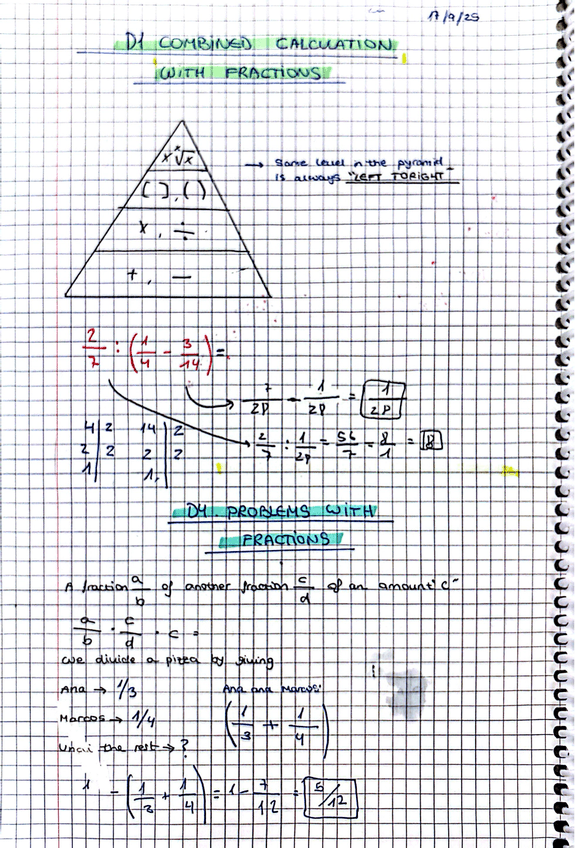 17/9/25
D1 COMBINED CALCULATION
WITH FRACTIONS
x √x
[ ], ( )
x , ÷
+, −
→ Same level in the pyramid
is always "LEFT TORIGHT"
2/7 : (1/4 − 3/14) =
7/28 − 1/28 = 1/28
4 | 2 14 | 2
2 | 2 2 | 2
1 | 1 |
2/7 : 1/28 = 56/7 = 8/1 = 8
D4. PROBLEMS WITH
FRACTIONS
A fraction a/b of another fraction c/d of an amount "C"
a/b · c/d · c =
We divide a pizza by giving
Ana → 1/3
Marcos → 1/4
What the rest → ?
Ana and Marcos:
(1/3 + 1/4)
1 − (1/3 + 1/4) = 1 − 7/12 = 5/12